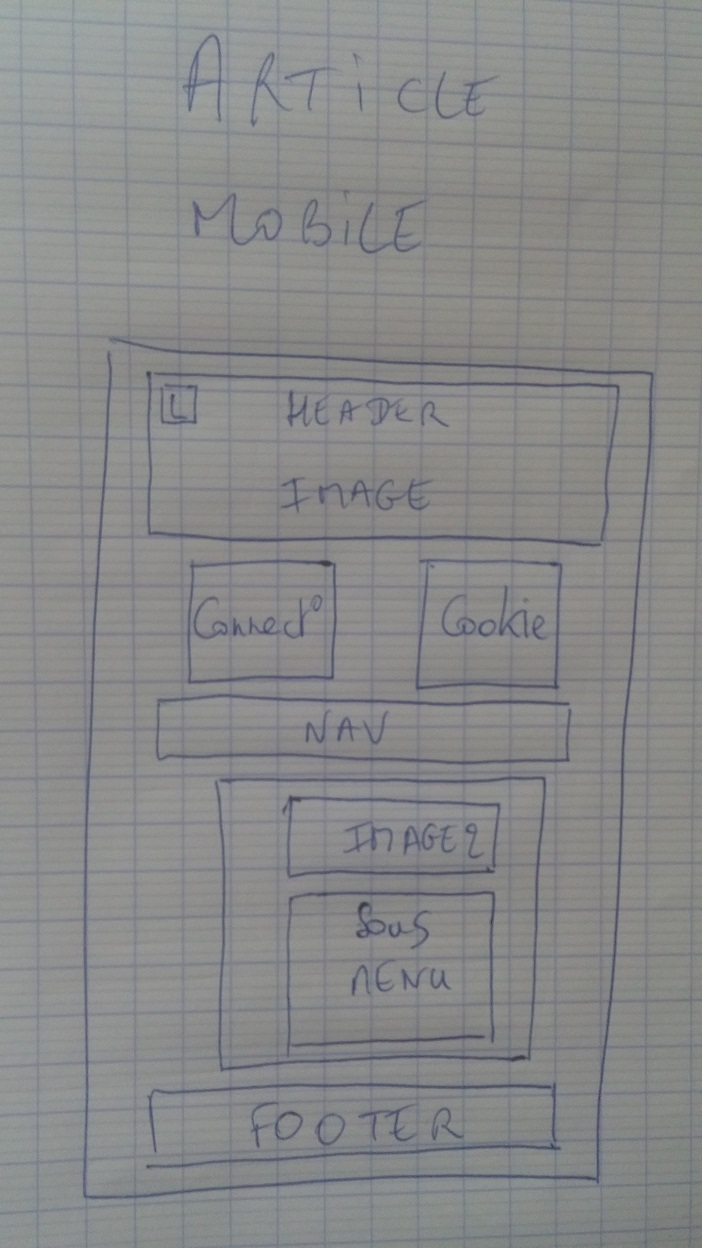 ARTiCLE
MOBiLE
L HEADER
IMAGE
Connect° Cookie
NAV
IMAGE2
Sous
MENU
FOOTER